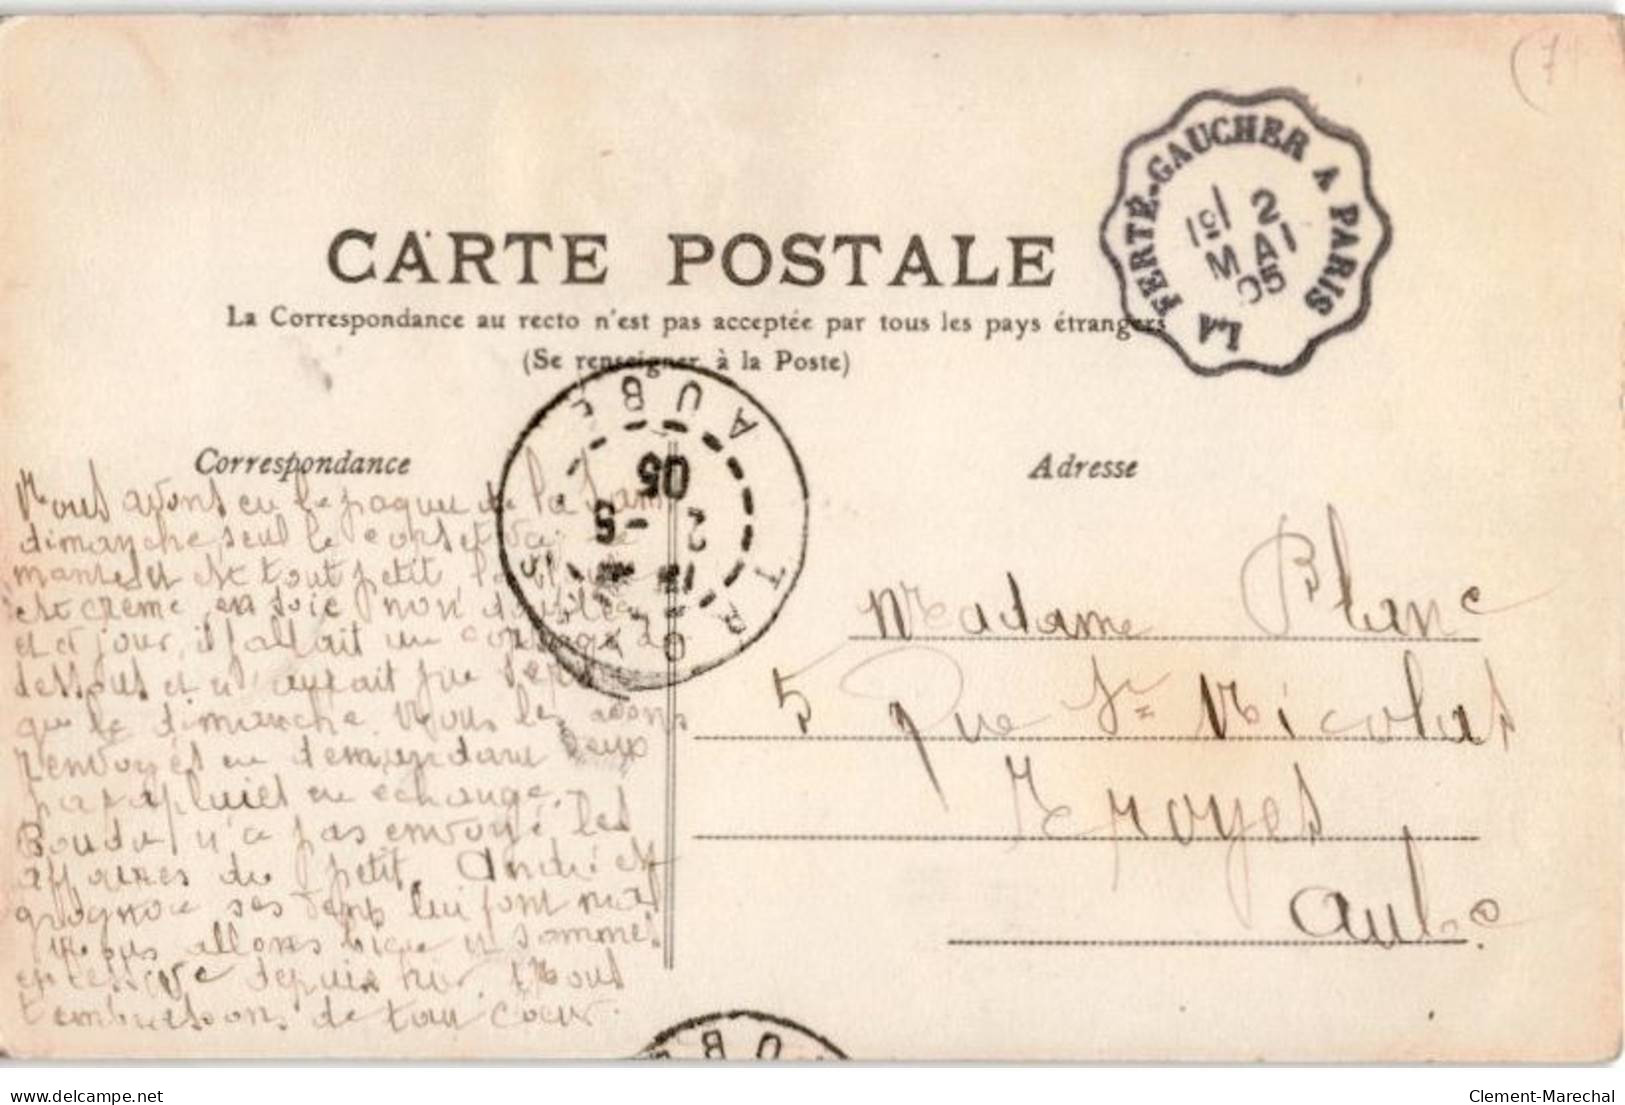 (7
CARTE POSTALE
La Correspondance au recto n'est pas acceptée par tous les pays étrangers
(Se renseigner à la Poste)
LA FERTÉ-GAUCHER A PARIS
2
MAI
05
TROYES AUBE
2 -5
05
Correspondance
Nous avons eu le paquet de la
dimanche, seul le corset
est tout petit
est crème en soie non
et à jour, il fallait un
dessous et n'aurait pu
que le dimanche. Nous les avons
renvoyés en demandant deux
parapluies en échange.
n'a pas envoyé les
affaires du petit. André est
grognon ses dents lui font mal
Nous allons bien et sommes
depuis hier. Nous
t'embrassons de tout coeur.
Adresse
Madame Blanc
5 Rue St Nicolas
Troyes
Aube
UBE
delcampe.net
Clement-Marechal